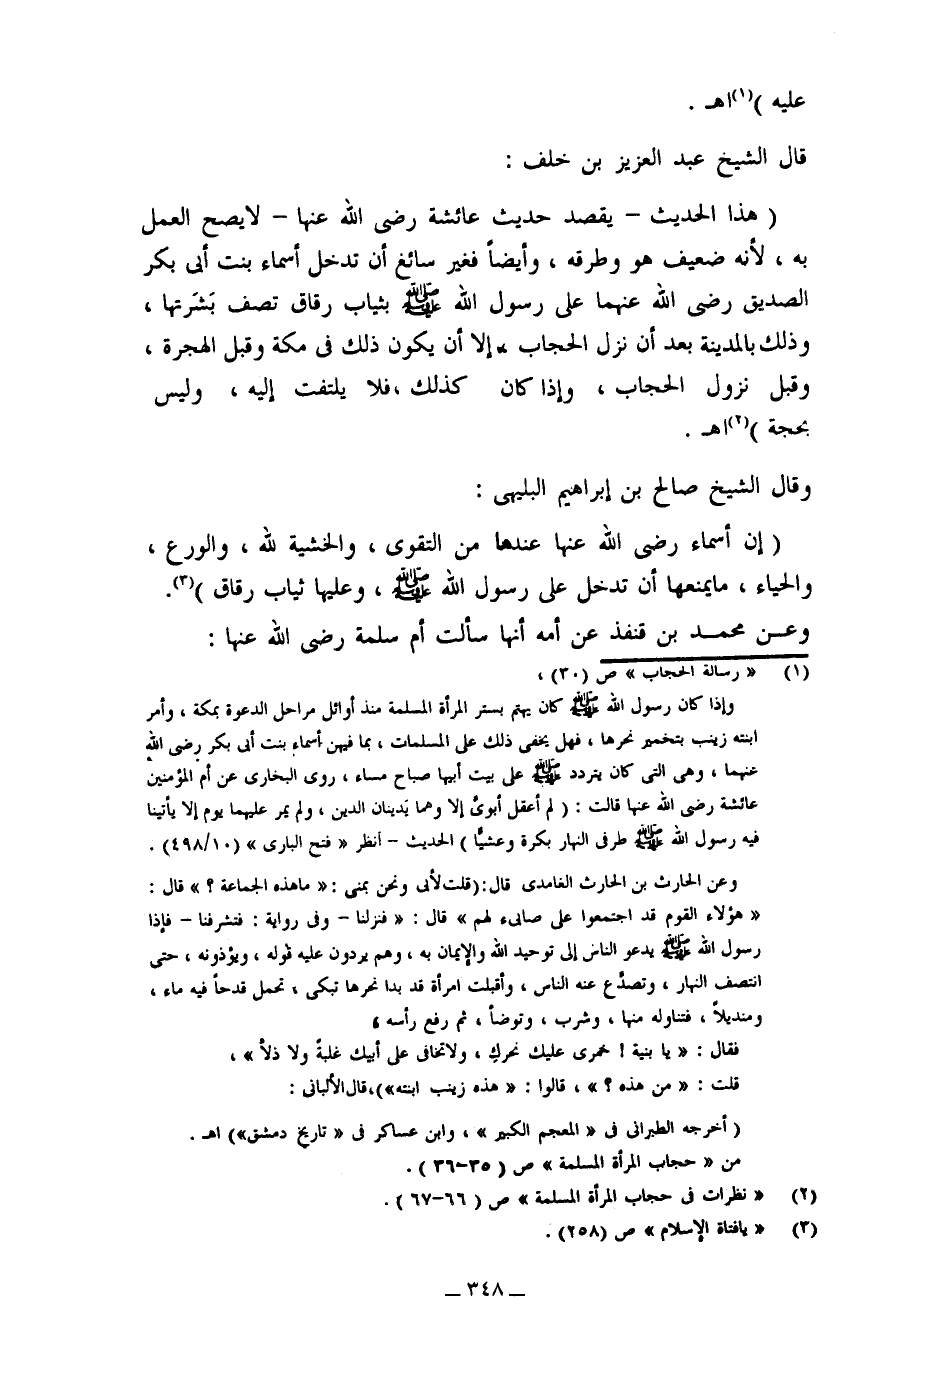 عليه )(١)اهـ .
قال الشيخ عبد العزيز بن خلف :
( هذا الحديث – يقصد حديث عائشة رضى الله عنها – لايصح العمل
به ، لأنه ضعيف هو وطرقه ، وأيضاً فغير سائغ أن تدخل أسماء بنت أبى بكر
الصديق رضى الله عنهما على رسول الله ﷺ بثياب رقاق تصف بَشَرَتها ،
وذلك بالمدينة بعد أن نزل الحجاب ، إلا أن يكون ذلك فى مكة وقبل الهجرة ،
وقبل نزول الحجاب ، وإذا كان كذلك ،فلا يلتفت إليه ، وليس
بحجة )(٢)اهـ .
وقال الشيخ صالح بن إبراهيم البليهى :
( إن أسماء رضى الله عنها عندها من التقوى ، والخشية لله ، والورع ،
والحياء ، مايمنعها أن تدخل على رسول الله ﷺ ، وعليها ثياب رقاق )(٣).
وعـن محمـد بن قنفذ عن أمه أنها سألت أم سلمة رضى الله عنها :
(١) « رسالة الحجاب » ص (٣٠) ،
وإذا كان رسول الله ﷺ كان يهتم بستر المرأة المسلمة منذ أوائل مراحل الدعوة بمكة ، وأمر
ابنته زينب بتخمير نحرها ، فهل يخفى ذلك على المسلمات ، بما فيهن أسماء بنت أبى بكر رضى الله
عنهما ، وهى التى كان يتردد ﷺ على بيت أبيها صباح مساء ، روى البخارى عن أم المؤمنين
عائشة رضى الله عنها قالت : ( لم أعقل أبوىَّ إلا وهما يَدينان الدين ، ولم يمر عليهما يوم إلا يأتينا
فيه رسول الله ﷺ طرفى النهار بكرة وعشيًّا ) الحديث – انظر « فتح البارى » (٤٩٨/١٠) .
وعن الحارث بن الحارث الغامدى قال:(قلت لأبى ونحن بمنى :« ماهذه الجماعة ؟ » قال :
« هؤلاء القوم قد اجتمعوا على صابىء لهم » قال : « فنزلنا – وفى رواية : فتشرفنا – فإذا
رسول الله ﷺ يدعو الناس إلى توحيد الله والإيمان به ، وهم يردون عليه قوله ، ويؤذونه ، حتى
انتصف النهار ، وتصدَّع عنه الناس ، وأقبلت امرأة قد بدا نحرها تبكى ، تحمل قدحاً فيه ماء ،
ومنديلاً ، فتناوله منها ، وشرب ، وتوضأ ، ثم رفع رأسه ،
فقال : « يا بنية ! خمرى عليك نحركِ ، ولاتخافى على أبيك غلبةً ولا ذلاً » ،
قلت : « من هذه ؟ » ، قالوا : « هذه زينب ابنته»)،قال الألبانى :
( أخرجه الطبرانى فى « المعجم الكبير » ، وابن عساكر فى « تاريخ دمشق») اهـ .
من « حجاب المرأة المسلمة » ص ( ٣٥–٣٦ ) .
(٢) « نظرات فى حجاب المرأة المسلمة » ص ( ٦٦–٦٧ ) .
(٣) « يافتاة الإسلام » ص (٢٥٨) .
ــ ٣٤٨ ــ